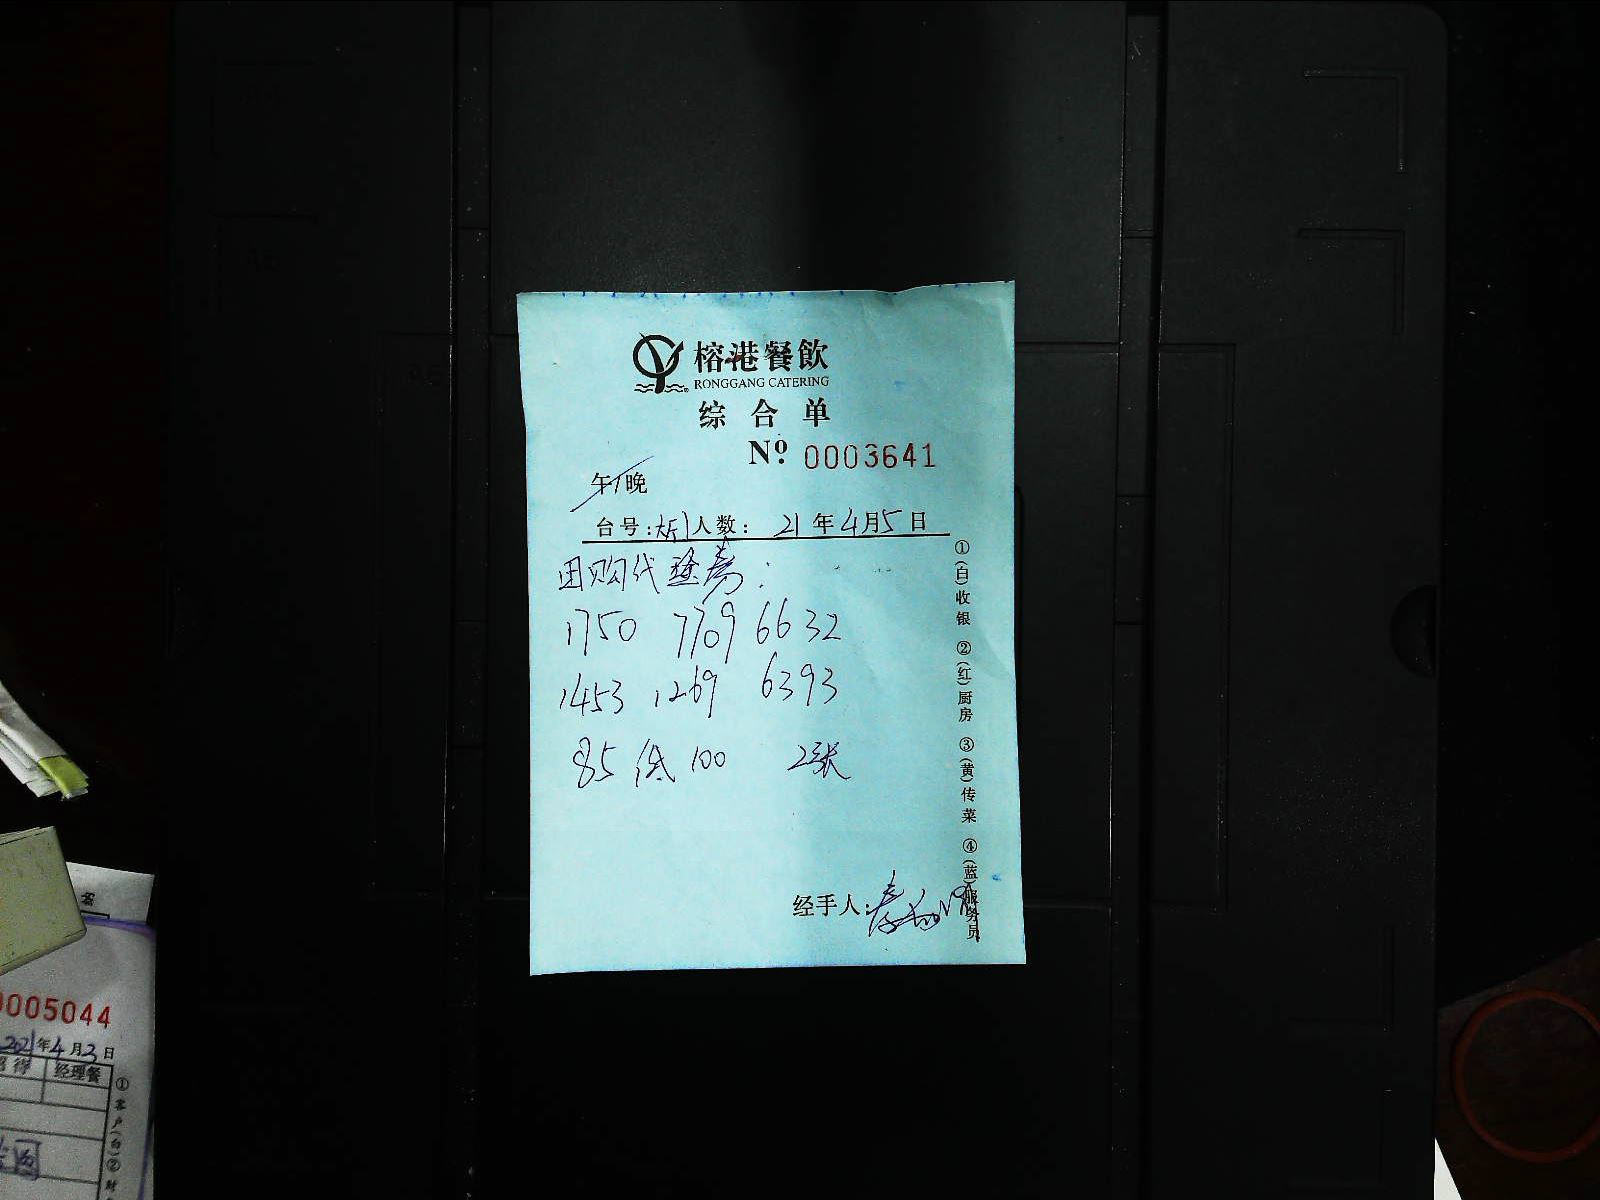 榕港餐飲
RONGGANG CATERING
综合单
Nº 0003641
午/晚
台号: 人数: 21年4月5日
团购代金券:
1750 7709 6632
1453 1269 6393
85 低 100 2张
经手人:
①(白)收银 ②(红)厨房 ③(黄)传菜 ④(蓝)服务员
0005044
2021年4月3日
待 经理餐
①客户(白)②财